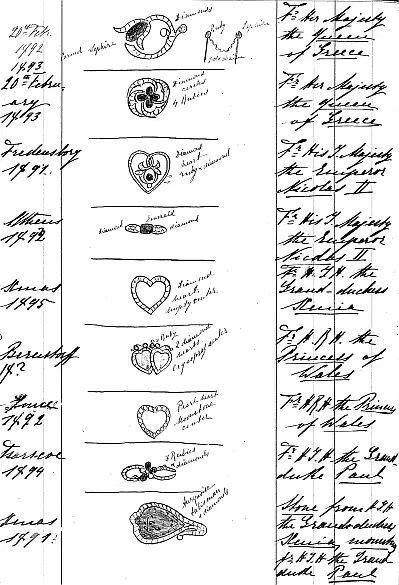 20th Febr.
1892
1893
Diamonds
Ruby
Sapphire
Sapphire
Fr Her Majesty
the Queen
of Greece
20th Febru-
ary
1893
Diamond
circles
4 Rubies
Fr Her Majesty
the Queen
of Greece
Fredensborg
1891.
Diamond
heart
ruby + diamond
Fr His I. Majesty
the Emperor
Nicolas II
Athens
1892
diamond
Emerald
diamond
Fr His I. Majesty
the Emperor
Nicolas II
Xmas
1895
Diamond
heart
empty center
Fr H. I. H. the
Grand-duchess
Xenia
Bernstorff
18?
Ruby
2 diamond
hearts
center
Fr H. R. H. the
Princess of
Wales
1892
Pearl heart
moonstone
center
Fr H R H the Princess
of Wales
Tsarscoe
1894
3 Rubies
diamonds
Fr H. I. H the Grand-
duke Paul
Xmas
1891?
turquoise
talisman
diamonds
Stone from H I H
the Grand-duchess
Xenia, mounting
fr H. I. H the Grand-
duke Paul